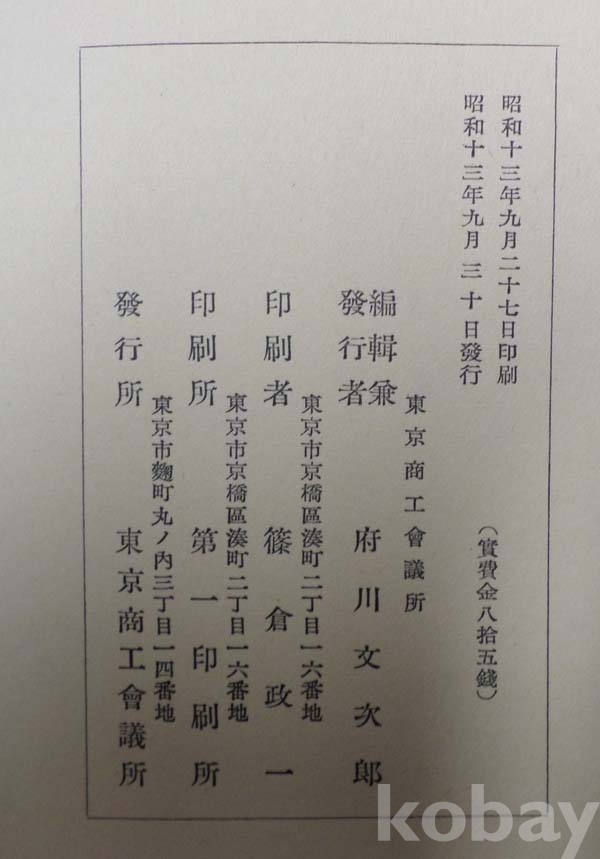 昭和十三年九月二十七日印刷
昭和十三年九月三十日發行
（實費金八拾五錢）
東京商工會議所
編輯兼
發行者
府川文次郎
東京市京橋區湊町二丁目一六番地
印刷者
篠倉政一
東京市京橋區湊町二丁目一六番地
印刷所
第一印刷所
東京市麴町丸ノ內三丁目一四番地
發行所
東京商工會議所
kobay